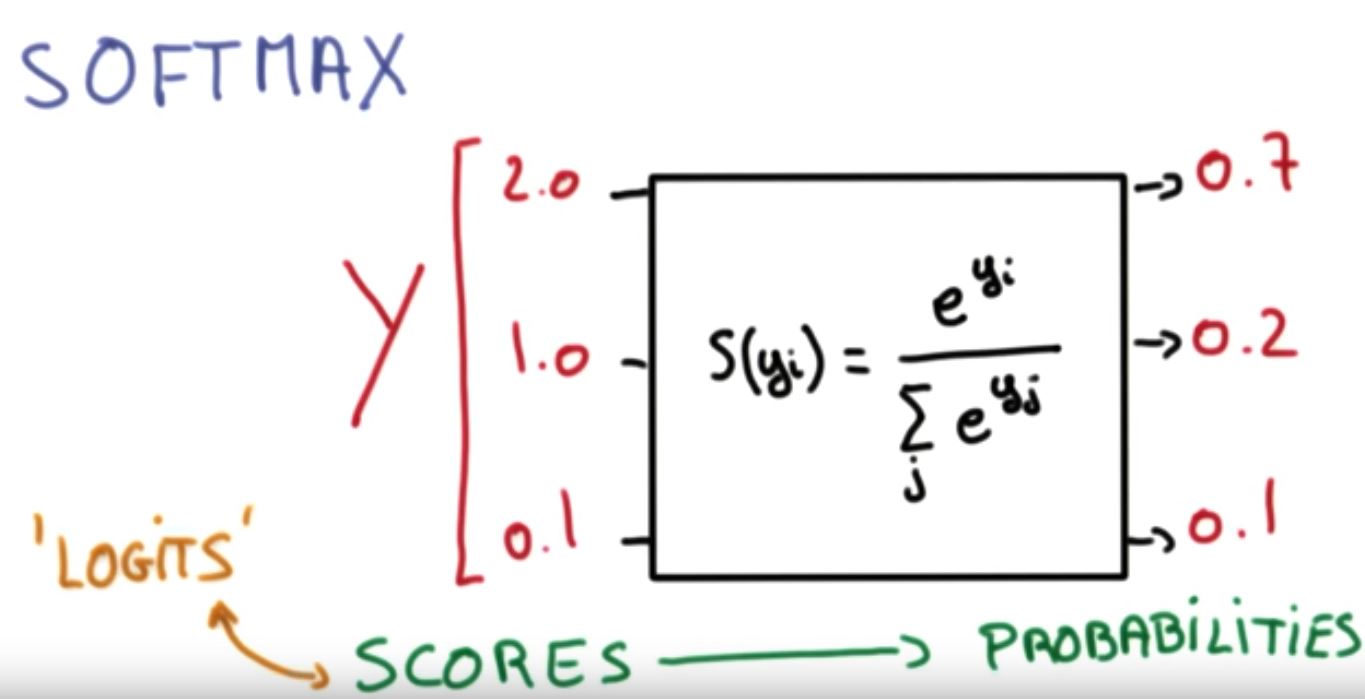 SOFTMAX
Y [ 2.0 → 0.7
1.0 → 0.2
S(yi) = e^yi / ∑j e^yj
0.1 → 0.1
'LOGITS'
SCORES → PROBABILITIES